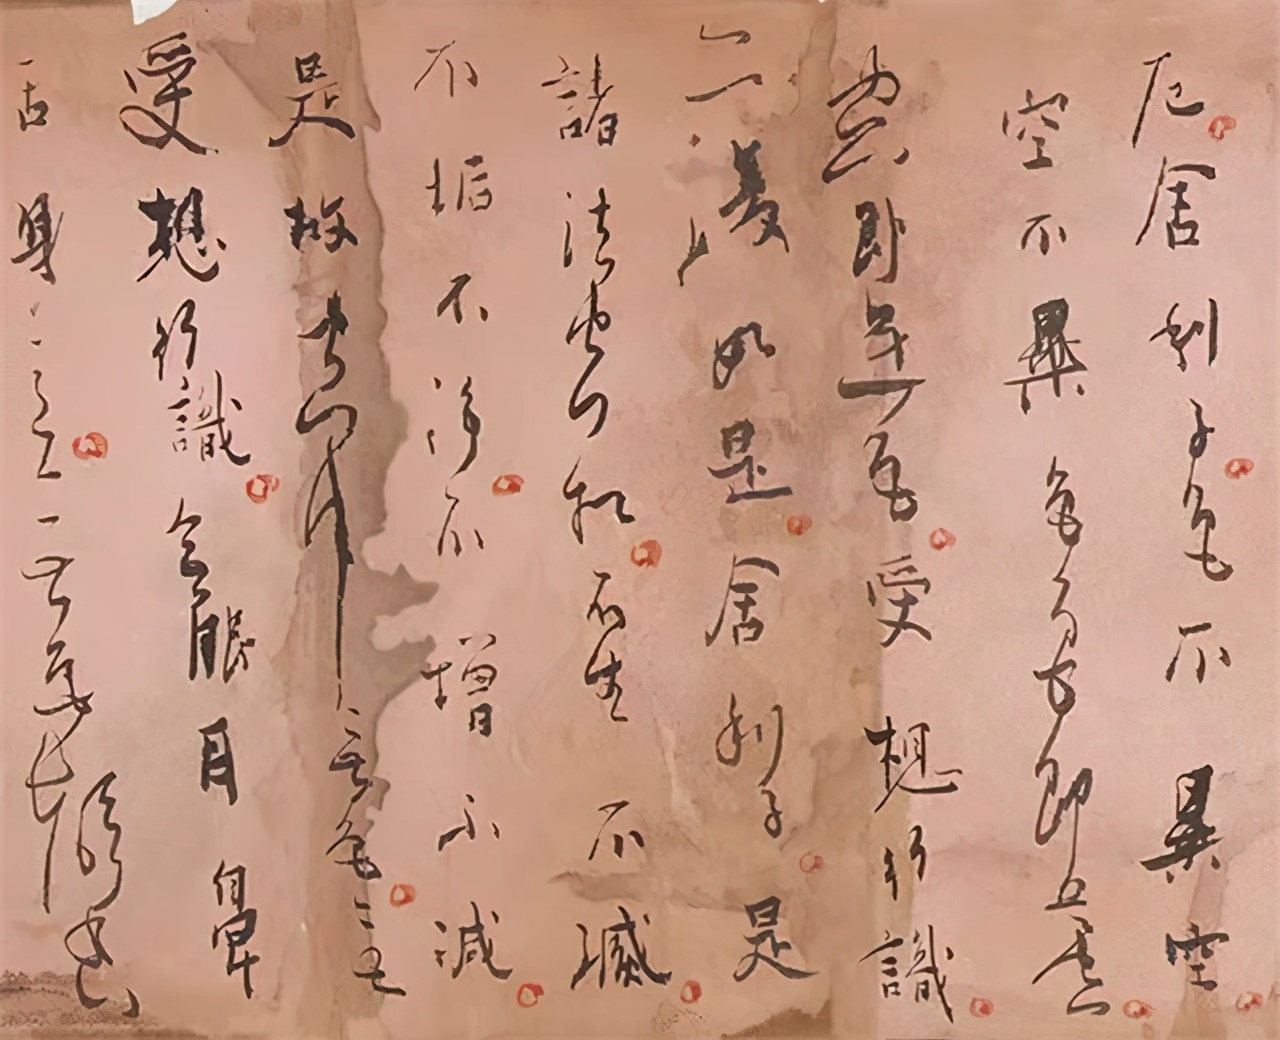 厄舍利子色不異空
空不異色色即是空
空即是色受想行識
亦復如是舍利子是
諸法空相不生不滅
不垢不淨不增不減
是故空中無色無
受想行識無眼耳鼻
舌身意